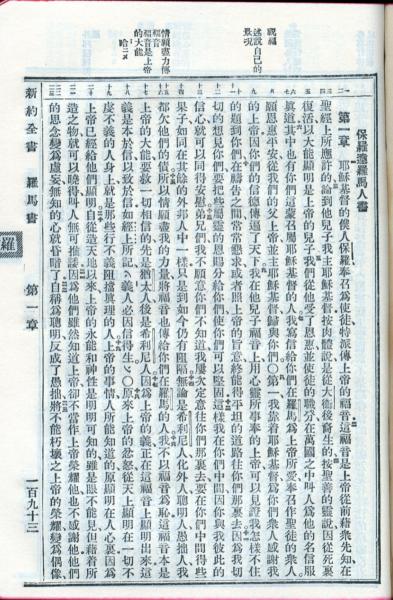 保羅達羅馬人書
祝福
述說自己的景况
情願盡力傳福音
福音是上帝的大能
第一章 耶穌基督的僕人保羅奉召爲使徒特派傳上帝的福音這福音是上帝從前藉衆先知在
聖經上所應許的論到他兒子我主耶穌基督按肉體說是從大衛後裔生的按聖善的靈說因從死裏
復活以大能顯明是上帝的兒子我們從他受了恩惠並使徒的職分在萬國之中叫人爲他的名信服
眞道其中也有你們這蒙召屬耶穌基督的人我寫信給你們在羅馬爲上帝所愛奉召作聖徒的衆人
願恩惠平安從我們的父上帝並主耶穌基督歸與你們○第一我靠着耶穌基督爲你們衆人感謝我
的上帝因你們的信德傳遍了天下我在他兒子福音上用心靈所事奉的上帝可以見證我怎樣不住
的題到你們在禱告之間常常懇求或者照上帝的旨意終能得平坦的道路往你們那裏去因爲我切
切的想見你們要把些屬靈的恩賜分給你們使你們可以堅固這樣我在你們中間因你與我彼此的
信心就可以同得安慰弟兄們我不願意你們不知道我屢次定意往你們那裏去要在你們中間得些
果子如同在其餘的外邦人中一樣只是到如今仍有阻隔無論是希利尼人化外人聰明人愚拙人我
都欠他們的債所以情願盡我的力量將福音也傳給你們在羅馬的人我不以福音爲恥這福音本是
上帝的大能要救一切相信的先是猶太人後是希利尼人因爲上帝的義正在這福音上顯明出來這
義是本於信以致於信如經上所記義人必因信得生○原來上帝的忿怒從天上顯明在一切不
虔不義的人身上就是那些行不義阻擋眞理的人上帝的事情人所能知道的原顯明在人心裏因爲
上帝已經給他們顯明自從造天地以來上帝的永能和神性是明明可知的雖是眼不能見但藉着所
造之物就可以曉得叫人無可推諉因爲他們雖然知道上帝卻不當作上帝榮耀他也不感謝他他們
的思念變爲虛妄無知的心就昏暗了自稱爲聰明反成了愚拙將不能朽壞之上帝的榮耀變爲偶像
新約全書 羅馬書 第一章 一百九十三
羅